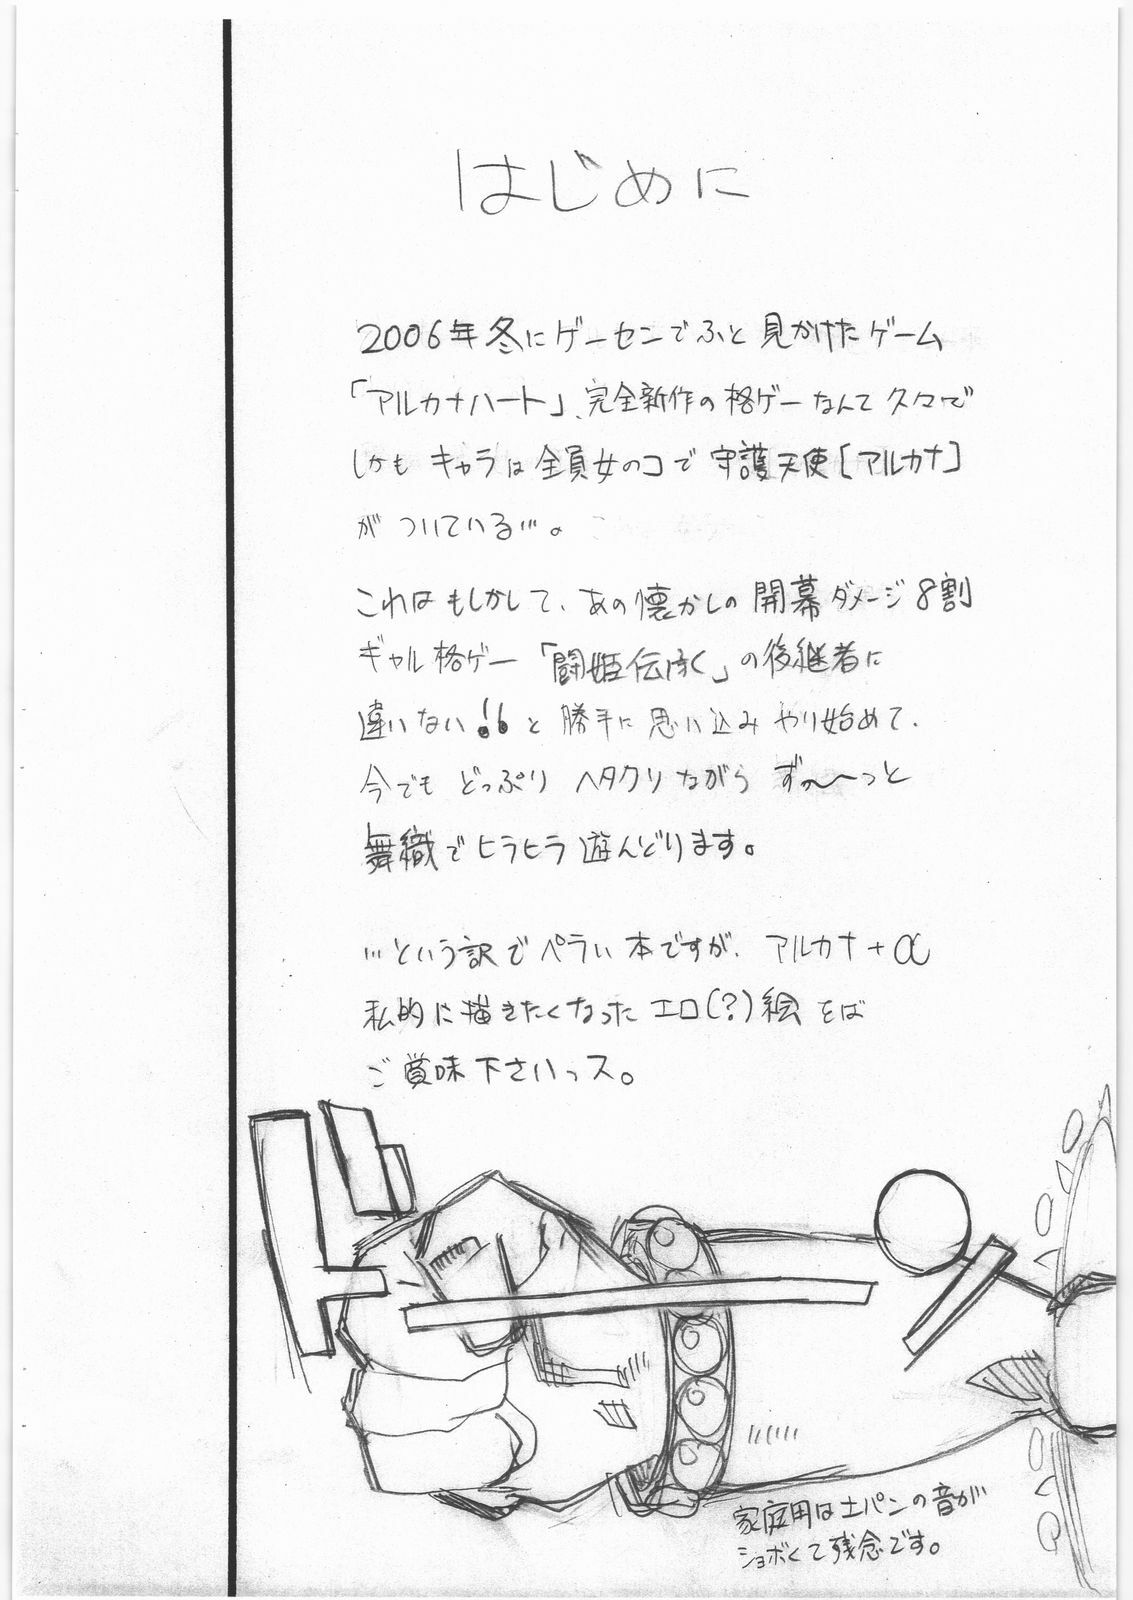 はじめに
2006年冬にゲーセンでふと見かけたゲーム
「アルカナハート」、完全新作の格ゲーなんて久々で
しかもキャラは全員女のコで守護天使[アルカナ]
がついている…。
これはもしかして、あの懐かしの開幕ダメージ8割
ギャル格ゲー「闘姫伝承」の後継者に
違いない!!と勝手に思い込みやり始めて、
今でもどっぷりヘタクソながらずっ〜〜っと
舞織でヒラヒラ遊んどります。
…という訳でペラい本ですが、アルカナ+α
私的に描きたくなったエロ(?)絵をば
ご賞味下さいっス。
家庭用は土パンの音が
ショボくて残念です。